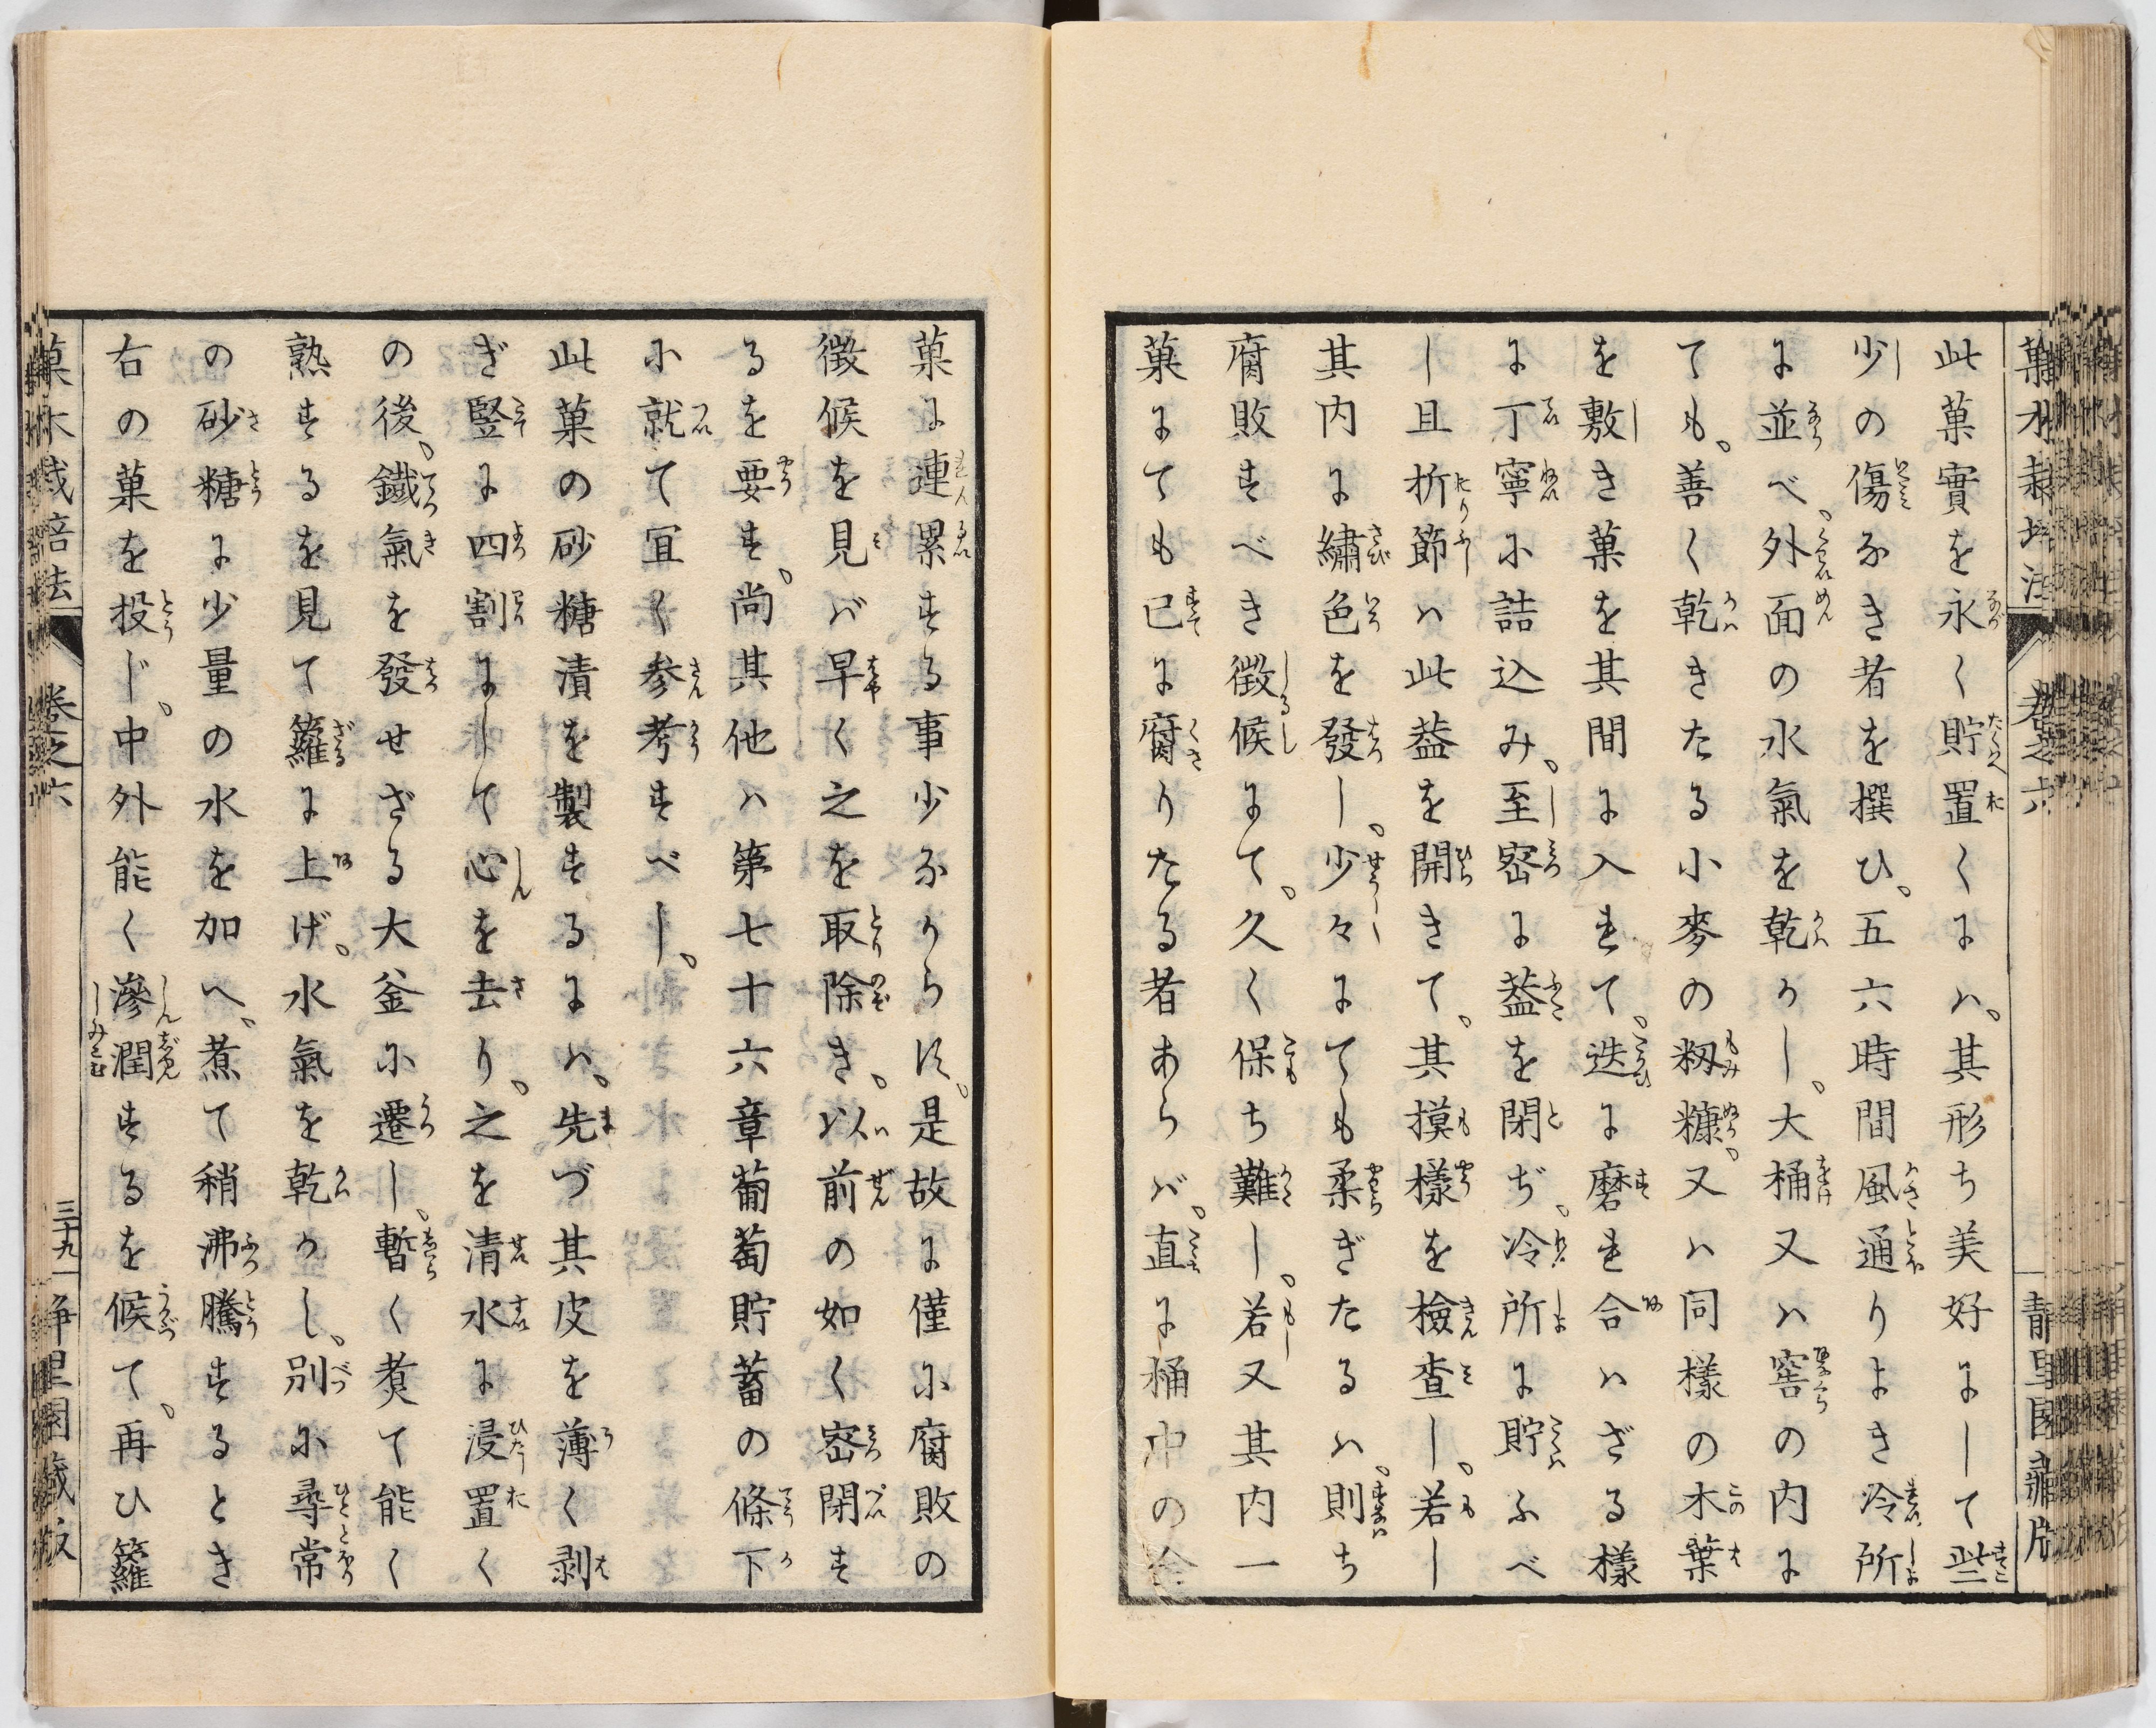 此菓實を永く貯置くには、其形ち美好にして些
少の傷なき者を撰ひ、五六時間風通りよき冷所
に並べ、外面の水氣を乾かし、大桶又は窖の内に
ても、善く乾きたる小麥の籾糠、又は同樣の木葉
を敷き菓を其間に入れて、迭に磨れ合はざる樣
に丁寧に詰込み、至密に葢を閉ぢ、冷所に貯ふべ
し且折節は此葢を開きて、其摸樣を檢査し、若し
其内に繡色を發し、少々にても柔ぎたるは、則ち
腐敗すべき徴候にて、久く保ち難し、若又其内一
菓にても已に腐りたる者あらば、直に桶中の全
菓木栽培法 卷之六
菓に連累する事少なからず、是故に僅に腐敗の
徴候を見ば早く之を取除き、以前の如く密閉す
るを要す、尚其他は第七十六章葡萄貯蓄の條下
に就て宜く参考すべし、
此菓の砂糖漬を製するには、先づ其皮を薄く剥
ぎ竪に四割にして心を去り、之を清水に浸置く
の後、鐵氣を發せざる大釜に遷し、暫く煑て能く
熟するを見て籮に上げ、水氣を乾かし、別に尋常
の砂糖に少量の水を加へ、煮て稍沸騰するとき
右の菓を投じ、中外能く滲潤するを候て、再ひ籮
菓木栽培法 卷之六 三十九 静里園藏版